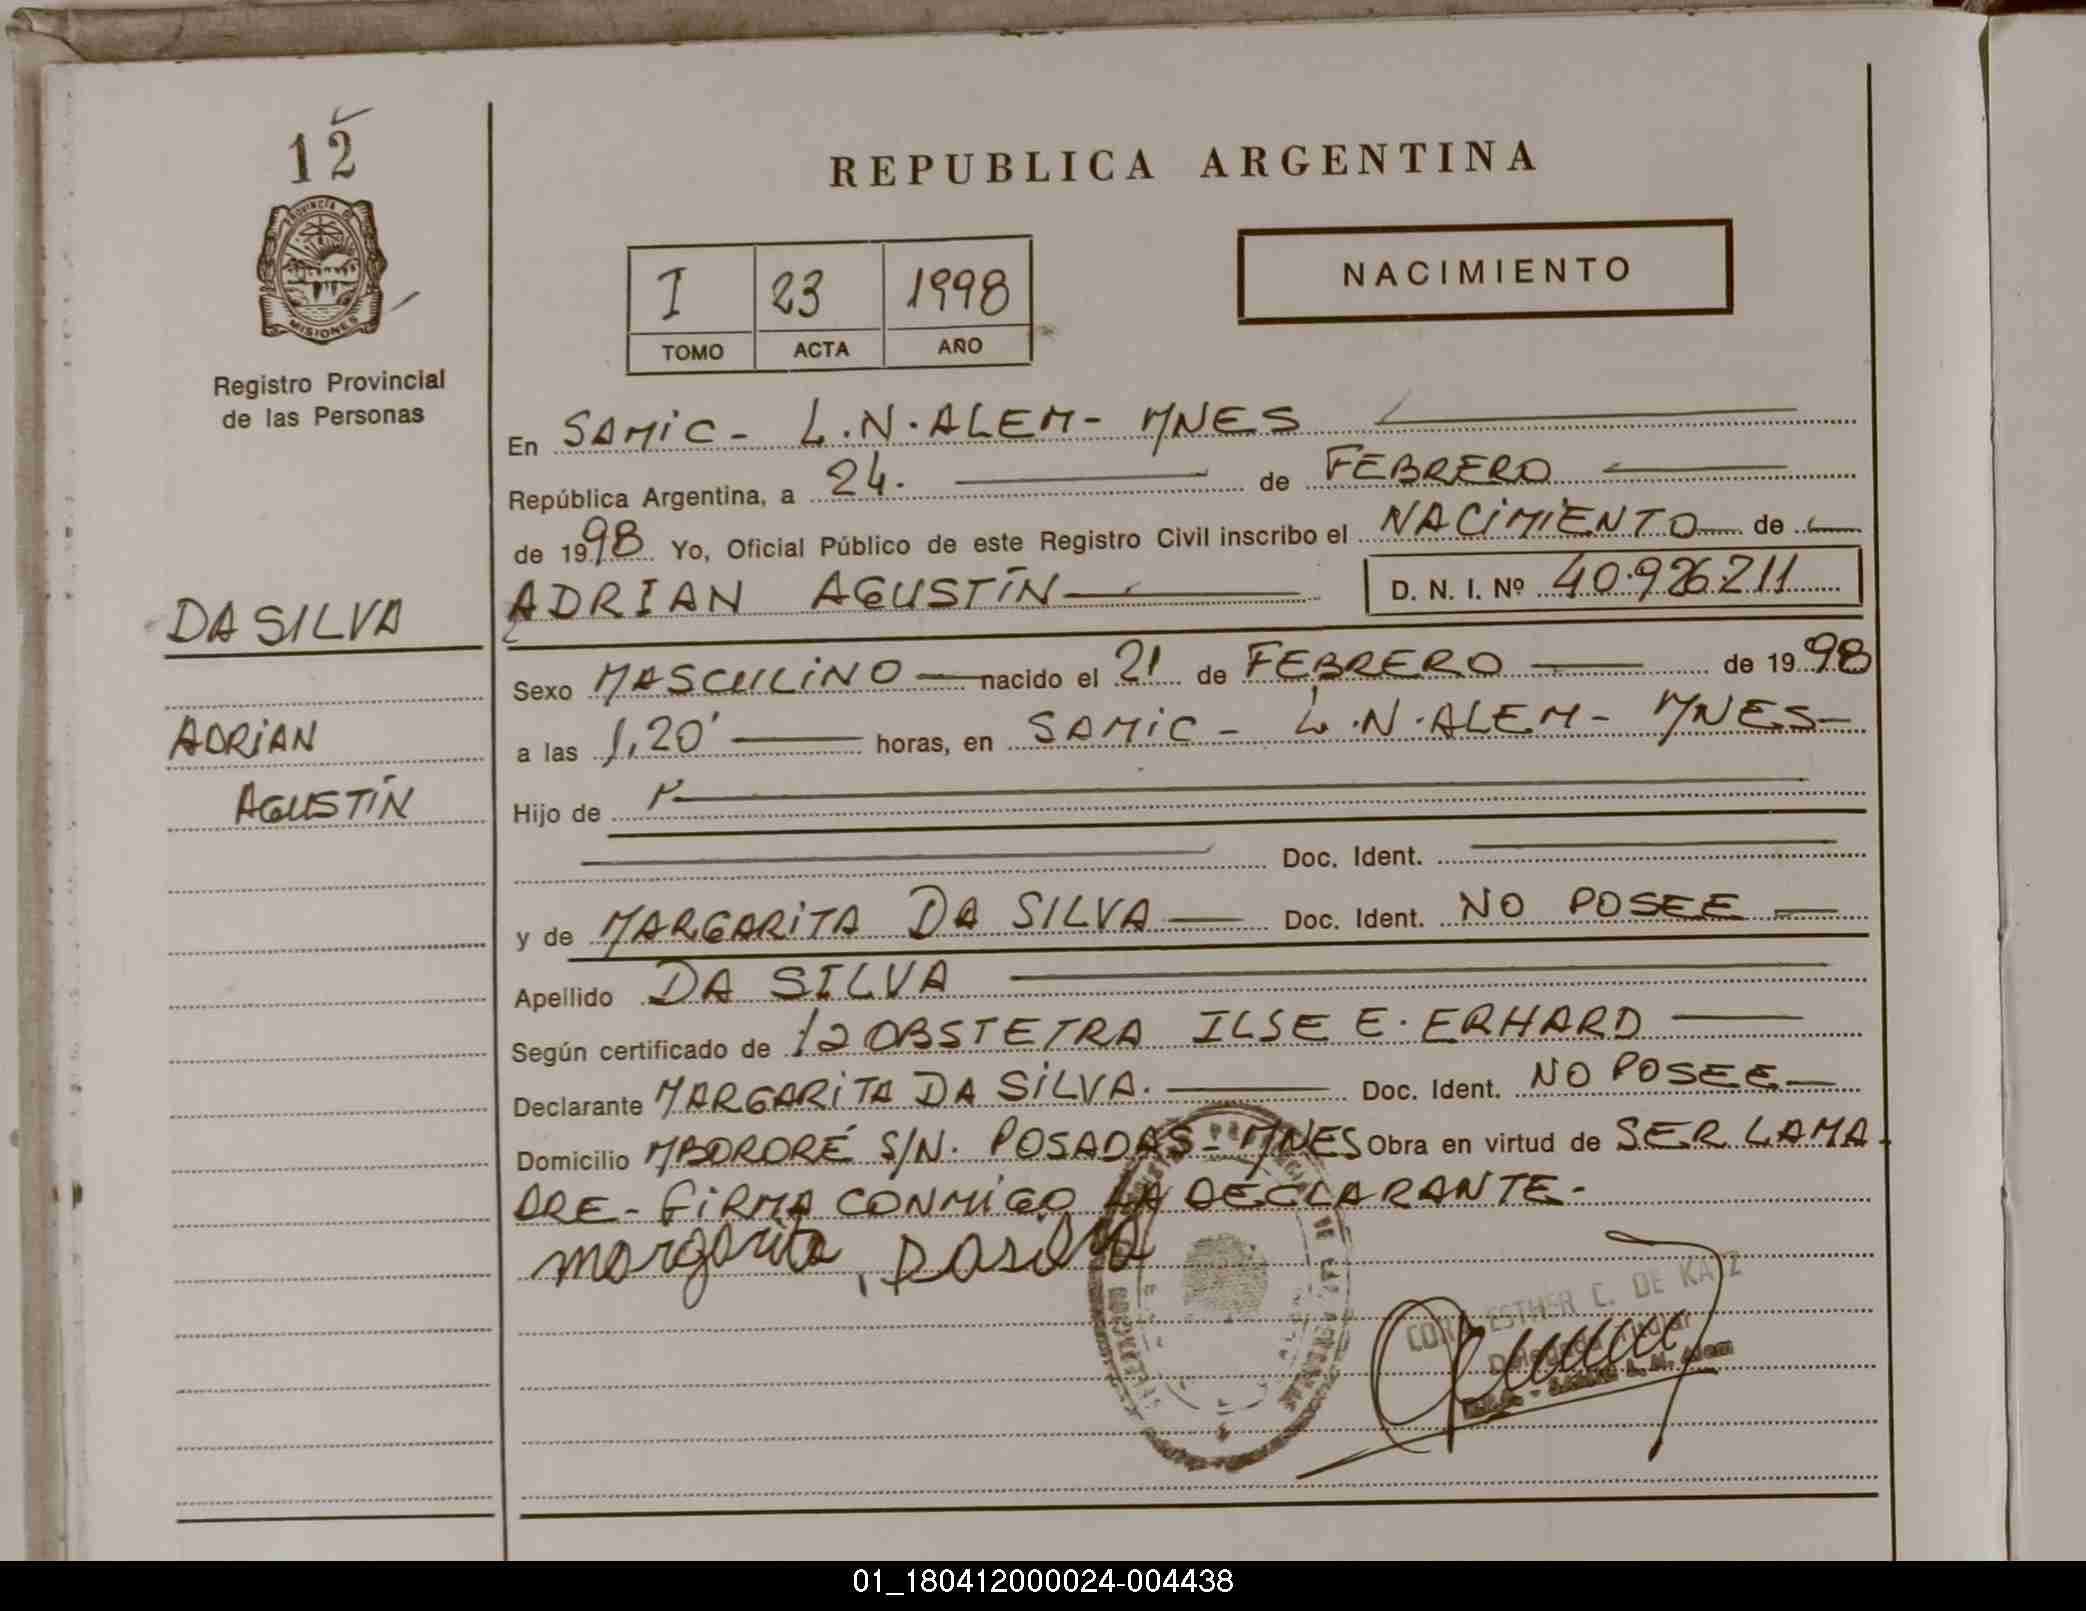 12
PROVINCIA DE
MISIONES
Registro Provincial
de las Personas
DA SILVA
ADRIAN
AGUSTÍN
REPUBLICA ARGENTINA
I 23 1998
TOMO ACTA AÑO
NACIMIENTO
En SAMIC - L.N. ALEM - MNES
República Argentina, a 24. de FEBRERO
de 1998 Yo, Oficial Público de este Registro Civil inscribo el NACIMIENTO de
ADRIAN AGUSTÍN D. N. I. Nº 40.926.211
Sexo MASCULINO nacido el 21 de FEBRERO de 1998
a las 1,20' horas, en SAMIC - L.N. ALEM - MNES
Hijo de
Doc. Ident.
y de MARGARITA DA SILVA Doc. Ident. NO POSEE
Apellido DA SILVA
Según certificado de la OBSTETRA ILSE E. ERHARD
Declarante MARGARITA DA SILVA. Doc. Ident. NO POSEE
Domicilio MBORORÉ S/N. POSADAS - MNES Obra en virtud de SER LA MA-
DRE - FIRMA CONMIGO LA DECLARANTE -
margarita Dasilva
ESTHER C. DE KATZ
Delegada Titular
L. N. Alem
01_180412000024-004438